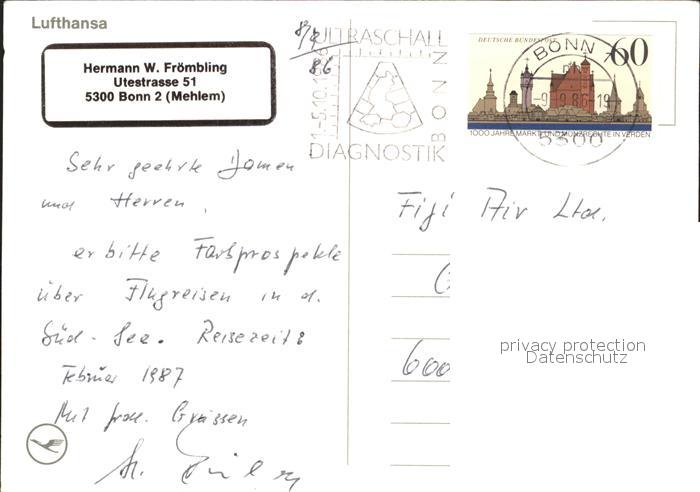 Lufthansa
Hermann W. Frömbling
Utestrasse 51
5300 Bonn 2 (Mehlem)
8/9
86
ULTRASCHALL
1.-5.10.
BONN
DIAGNOSTIK
DEUTSCHE BUNDESPOST
60
1000 JAHRE MARKT- UND MÜNZRECHTE IN VERDEN
BONN
-9.9.86-19
5300
Sehr geehrte Damen
und Herren,
erbitte Farbprospekte
über Flugreisen in d.
Süd-See. Reisezeit:
Februar 1987
Mit frdl. Grüssen
Fiji Air Ltd.
600
privacy protection
Datenschutz